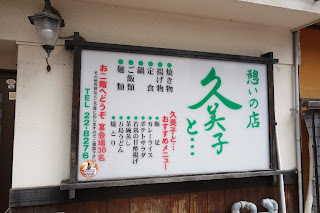 憩いの店
久美子
と…
●焼き物
●揚げ物
●定食
●鍋
●ご飯類
●麺類
久美子と…
おすすめメニュー
●豚足
●カレーライス
●ポテトサラダ
●若鶏の甘酢揚げ
●茶碗蒸し
●五島うどん
●焼とり
お二階へどうぞ 宴会場30名
TEL 22-8276